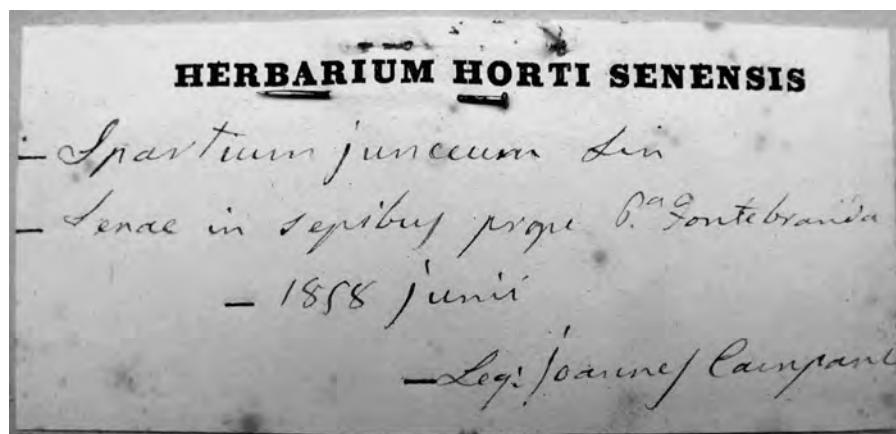 HERBARIUM HORTI SENENSIS
– Spartium junceum Lin
– Senae in sepibus prope P.ª Fontebranda
– 1858 junii
– Leg: Joannes Campani